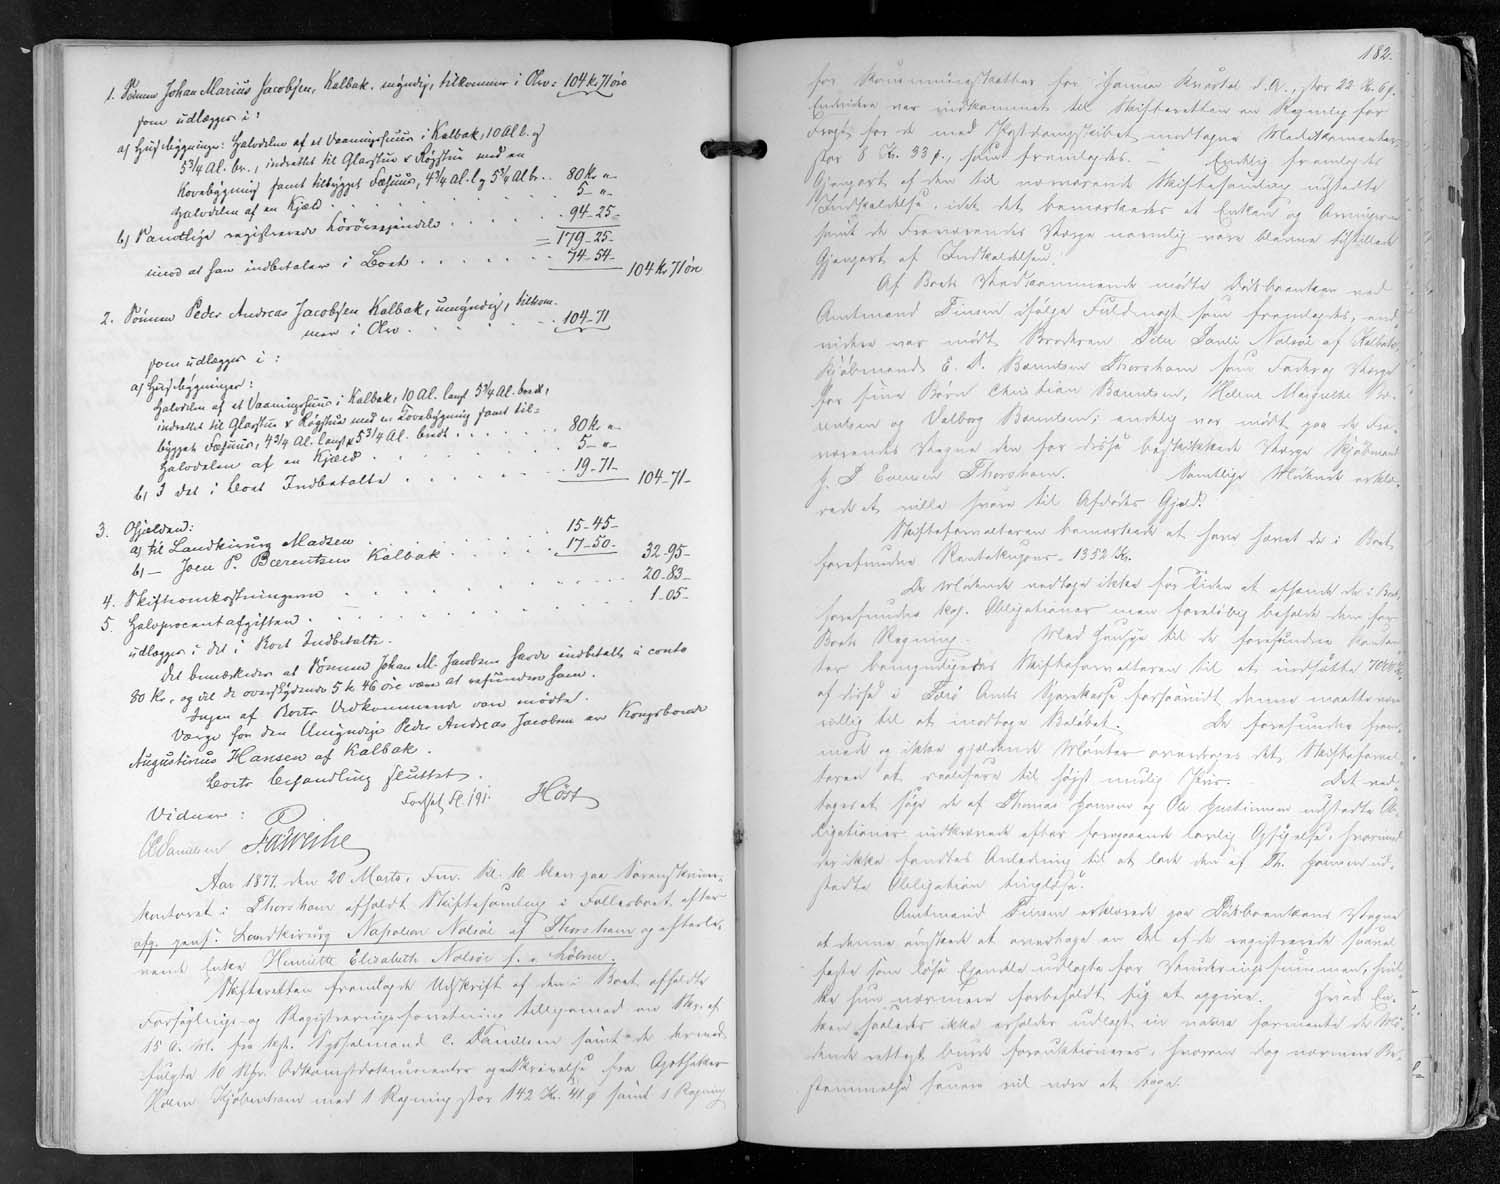 1. Sønnen Johan Marius Jacobsen, Kalbak, myndig, tilkommer i Arv: 104 kr. 71 øre
som udlægges i:
a) Husbygninger: Halvdelen af et Vaaningshuus i Kalbak, 10 Al. l. og
5 3/4 Al. br., indrettet til Glarstue & Røgstue med en
Kovebygning samt tilbygget Fæhuus, 4 3/4 Al. l. og 5 3/4 Al br. . 80 kr "-
Halvdelen af en Kjeld . . . . . . 5- "-
b) Samtlige registrerede Løsøreejendele . . . . 94-25-
= 179-25-
imod at han indbetaler i Boet . . . . . . . 74-54- 104 kr 71 øre
2. Sønnen Peder Andreas Jacobsen Kalbak, umyndig, tilkom-
mer i Arv . . . . . . 104-71
som udlægges i:
a) Husbygninger:
Halvdelen af et Vaaningshuus i Kalbak, 10 Al. langt 5 3/4 Al. bredt,
indrettet til Glarstue & Røgstue med en Kovebygning samt til-
bygget Fæhuus, 4 3/4 Al. langt & 5 3/4 Al. bredt . . . . 80 kr "-
Halvdelen af en Kjeld . . . . . . 5- "-
b) I det i Boet Indbetalte . . . . . . 19-71- 104-71-
3. Gjælden:
a) til Landkirurg Madsen . . . . . 15-45-
b) — Joen P. Bærentsen Kalbak . . . . 17-50- 32-95-
4. Skifteomkostningerne . . . . . . 20-83-
5. Halvprocentafgiften . . . . . . 1-05-
udlægges i det i Boet Indbetalte.
Det bemærkedes at Sønnen Johan M. Jacobsen havde indbetalt à conto
80 kr, og vil de overskydende 5 kr 46 øre være at refundere ham.
Ingen af Boets Vedkommende vare mødte.
Værge for den Umyndige Peder Andreas Jacobsen er Kongsbonde
Augustinus Hansen af Kalbak.
Boets Behandling sluttet.
Fortsat fl. 191. Høst
Vidner:
CDanielsen
Aar 1877, den 20 Marts, Fm. Kl. 10 blev paa Sorenskriver-
kontoret i Thorshavn afholdt Skiftesamling i Fællesboet efter
afg. pens. Landkirurg Napoleon Nolsøe af Thorshavn og efterle-
vende Enke Henriette Elisabeth Nolsøe f. Løbner.
Skifteretten fremlagde Udskrift af den i Boet afholdte
Forseglings- og Registreringsforretning tilligemed en Skr. af
15 d. M. fra kst. Sysselmand C. Danielsen samt de dermed
fulgte 10 Adkomstdokumenter og en Skrivelse fra Apotheker
Holm Kjøbenhavn med 1 Regning stor 142 Kr. 41 Ø samt 1 Regning
182.
for d. A., stor 22 Kr. 6 Ø.
Endvidere var indkommet til Skifteretten en Regning for
Fragt for de med Postdampskibet modtagne Medikamenter
stor 8 Kr. 33 Ø., som fremlagdes. — Endelig fremlagdes
Gjenpart af den til nærværende Skiftesamling udstedte
Indkaldelse, idet det bemærkedes at Enken og Arvingerne
samt de Fraværendes Værge nemlig vare blevne tilstillede
Gjenpart af Indkaldelsen.
Af Boets Vedkommende mødte Dødsboenken ved
Amtmand Finsen ifølge Fuldmagt som fremlagdes, end-
videre var mødt Broderen Peter Pauli Nolsøe af Kalbak,
Kjøbmand E. D. Bærentsen Thorshavn som Fader og Værge
for sine Børn Christian Bærentsen, Helene Margrethe Bæ-
rentsen og Valborg Bærentsen; endelig var mødt paa de Fra-
værendes Vegne den for disse beskikkede Værge Kjøbmand
J. D. Evensen Thorshavn. Samtlige Mødende erklæ-
rede at ville svare til Afdødes Gjæld.
Skifteforvalteren bemærkede at have hævet de i Boet
forefundne Rentekupons - 1352 Kr.
De Mødende vedtoge ikke for Tiden at afhænde de i Boet
forefundne Kgl. Obligationer men foreløbig beholde dem for
Boets Regning. Med Hensyn til de forefundne Konten-
ter bemyndigedes Skifteforvalteren til at indsætte 7000 Kr.
af disse i Færø Amts Sparekasse forsaavidt denne maatte være
villig til at modtage Beløbet. De forefundne frem-
mede og ikke gjældende Mønter overdroges det Skifteforval-
teren at realisere til høist mulig Priis. Det ved-
toges at søge de af Thomas Hansen og Ole Justinussen udstedte Ob-
ligationer inddrevne efter foregaaende lovlig Opsigelse, hvorimod
der ikke fandtes Anledning til at lade den af Th. Hansen ud-
stedte Obligation tinglæse.
Amtmand Finsen erklærede paa Dødsboenkens Vegne
at denne ønskede at overtage en Del af de registrerede saavel
faste som løse Ejendele udlagte for Vurderingssummen, hvil-
ke hun nærmere forbeholdt sig at opgive. Hvad En-
ken saaledes ikke erholder udlagt in natura formente de Mø-
dende rettest burde forauktioneres, hvorom dog nærmere Be-
stemmelse senere vil være at tage.